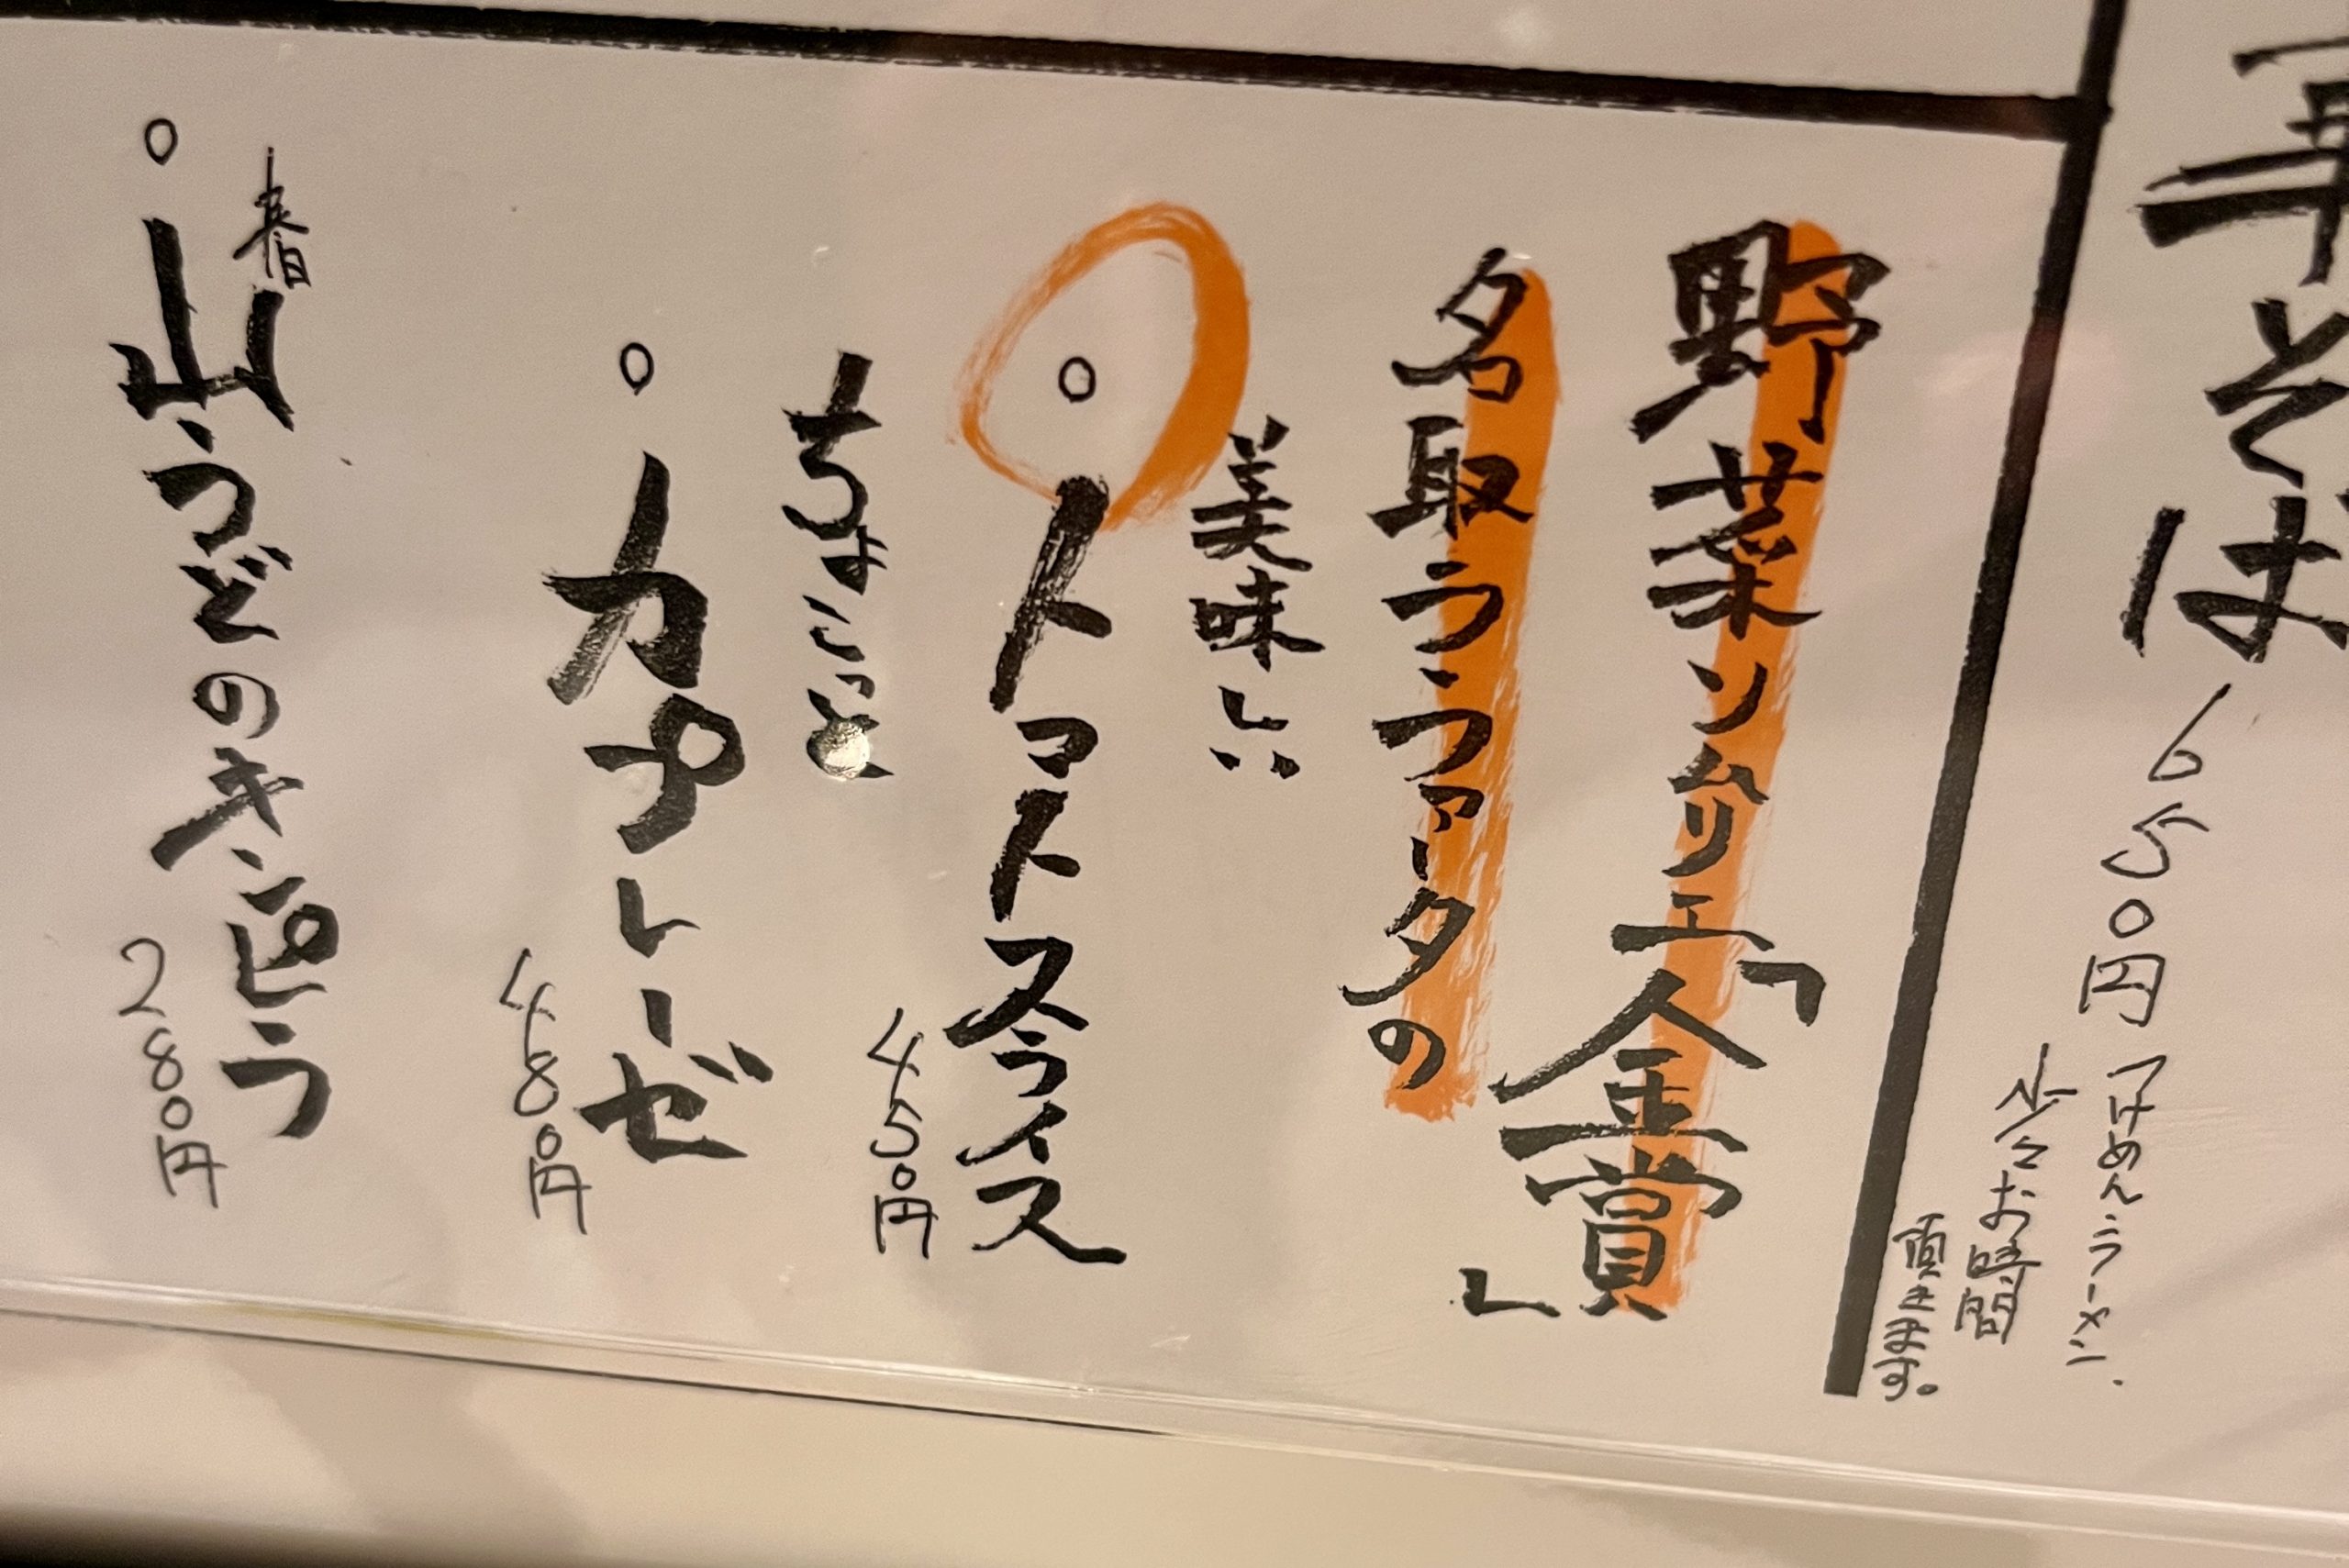 そば 650円
つけめんラーメン.
少々お時間
頂きます。
野菜ソムリエ「金賞」
名取ラファータの
美味い
○トマトスライス
450円
ちょこっと
○カプレーゼ
480円
春
○山うどのキンピラ
280円